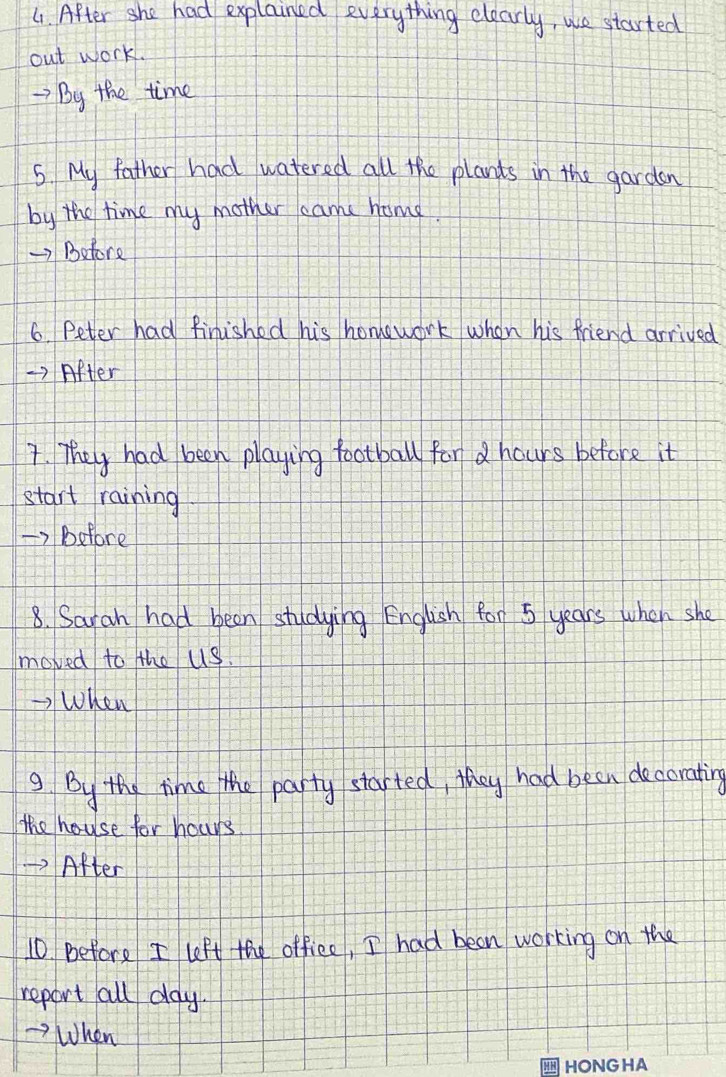 4. After she had explained everything clearly, we started
out work.
→ By the time
5. My father had watered all the plants in the garden
by the time my mother came home.
→ Before
6. Peter had finished his homework when his friend arrived
→ After
7. They had been playing football for 2 hours before it
start raining.
→ Before
8. Sarah had been studying English for 5 years when she
moved to the US.
→ When
9. By the time the party started, they had been decorating
the house for hours.
→ After
10. Before I left the office, I had been working on the
report all day.
→ When
HH HONG HA